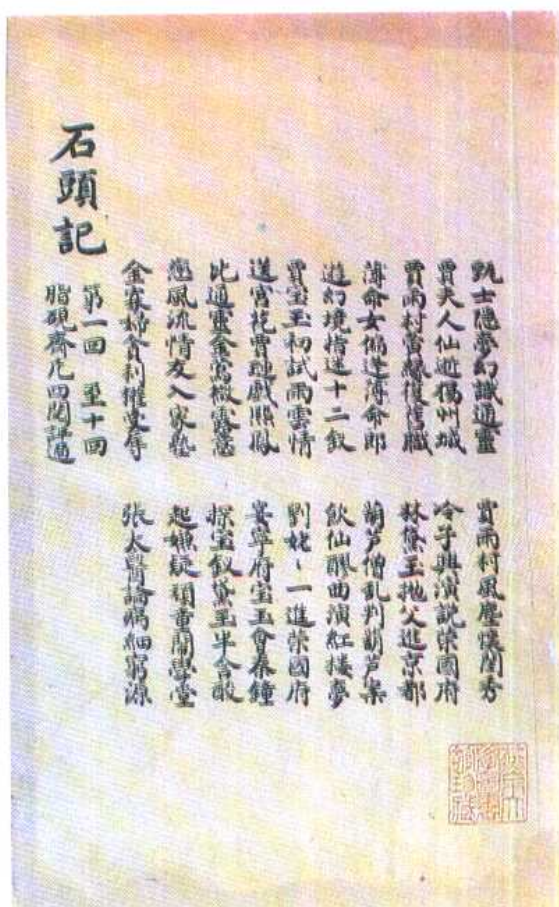 甄士隱夢幻識通靈 賈雨村風塵懷閨秀
賈夫人仙逝揚州城 冷子興演說榮國府
賈雨村夤緣復舊職 林黛玉拋父進京都
薄命女偏逢薄命郎 葫芦僧乱判葫芦案
遊幻境指迷十二釵 飲仙醪曲演紅樓夢
賈宝玉初試雨雲情 劉姥〻一進榮國府
送宮花賈璉戲熙鳳 宴寧府宝玉會秦鐘
比通靈金鶯微露意 探宝釵黛玉半含酸
戀風流情友入家塾 起嫌疑頑童鬧學堂
金寡婦貪利權受辱 張太醫論病細窮源
第一回 至十回
脂硯齋凡四閱評過
石頭記